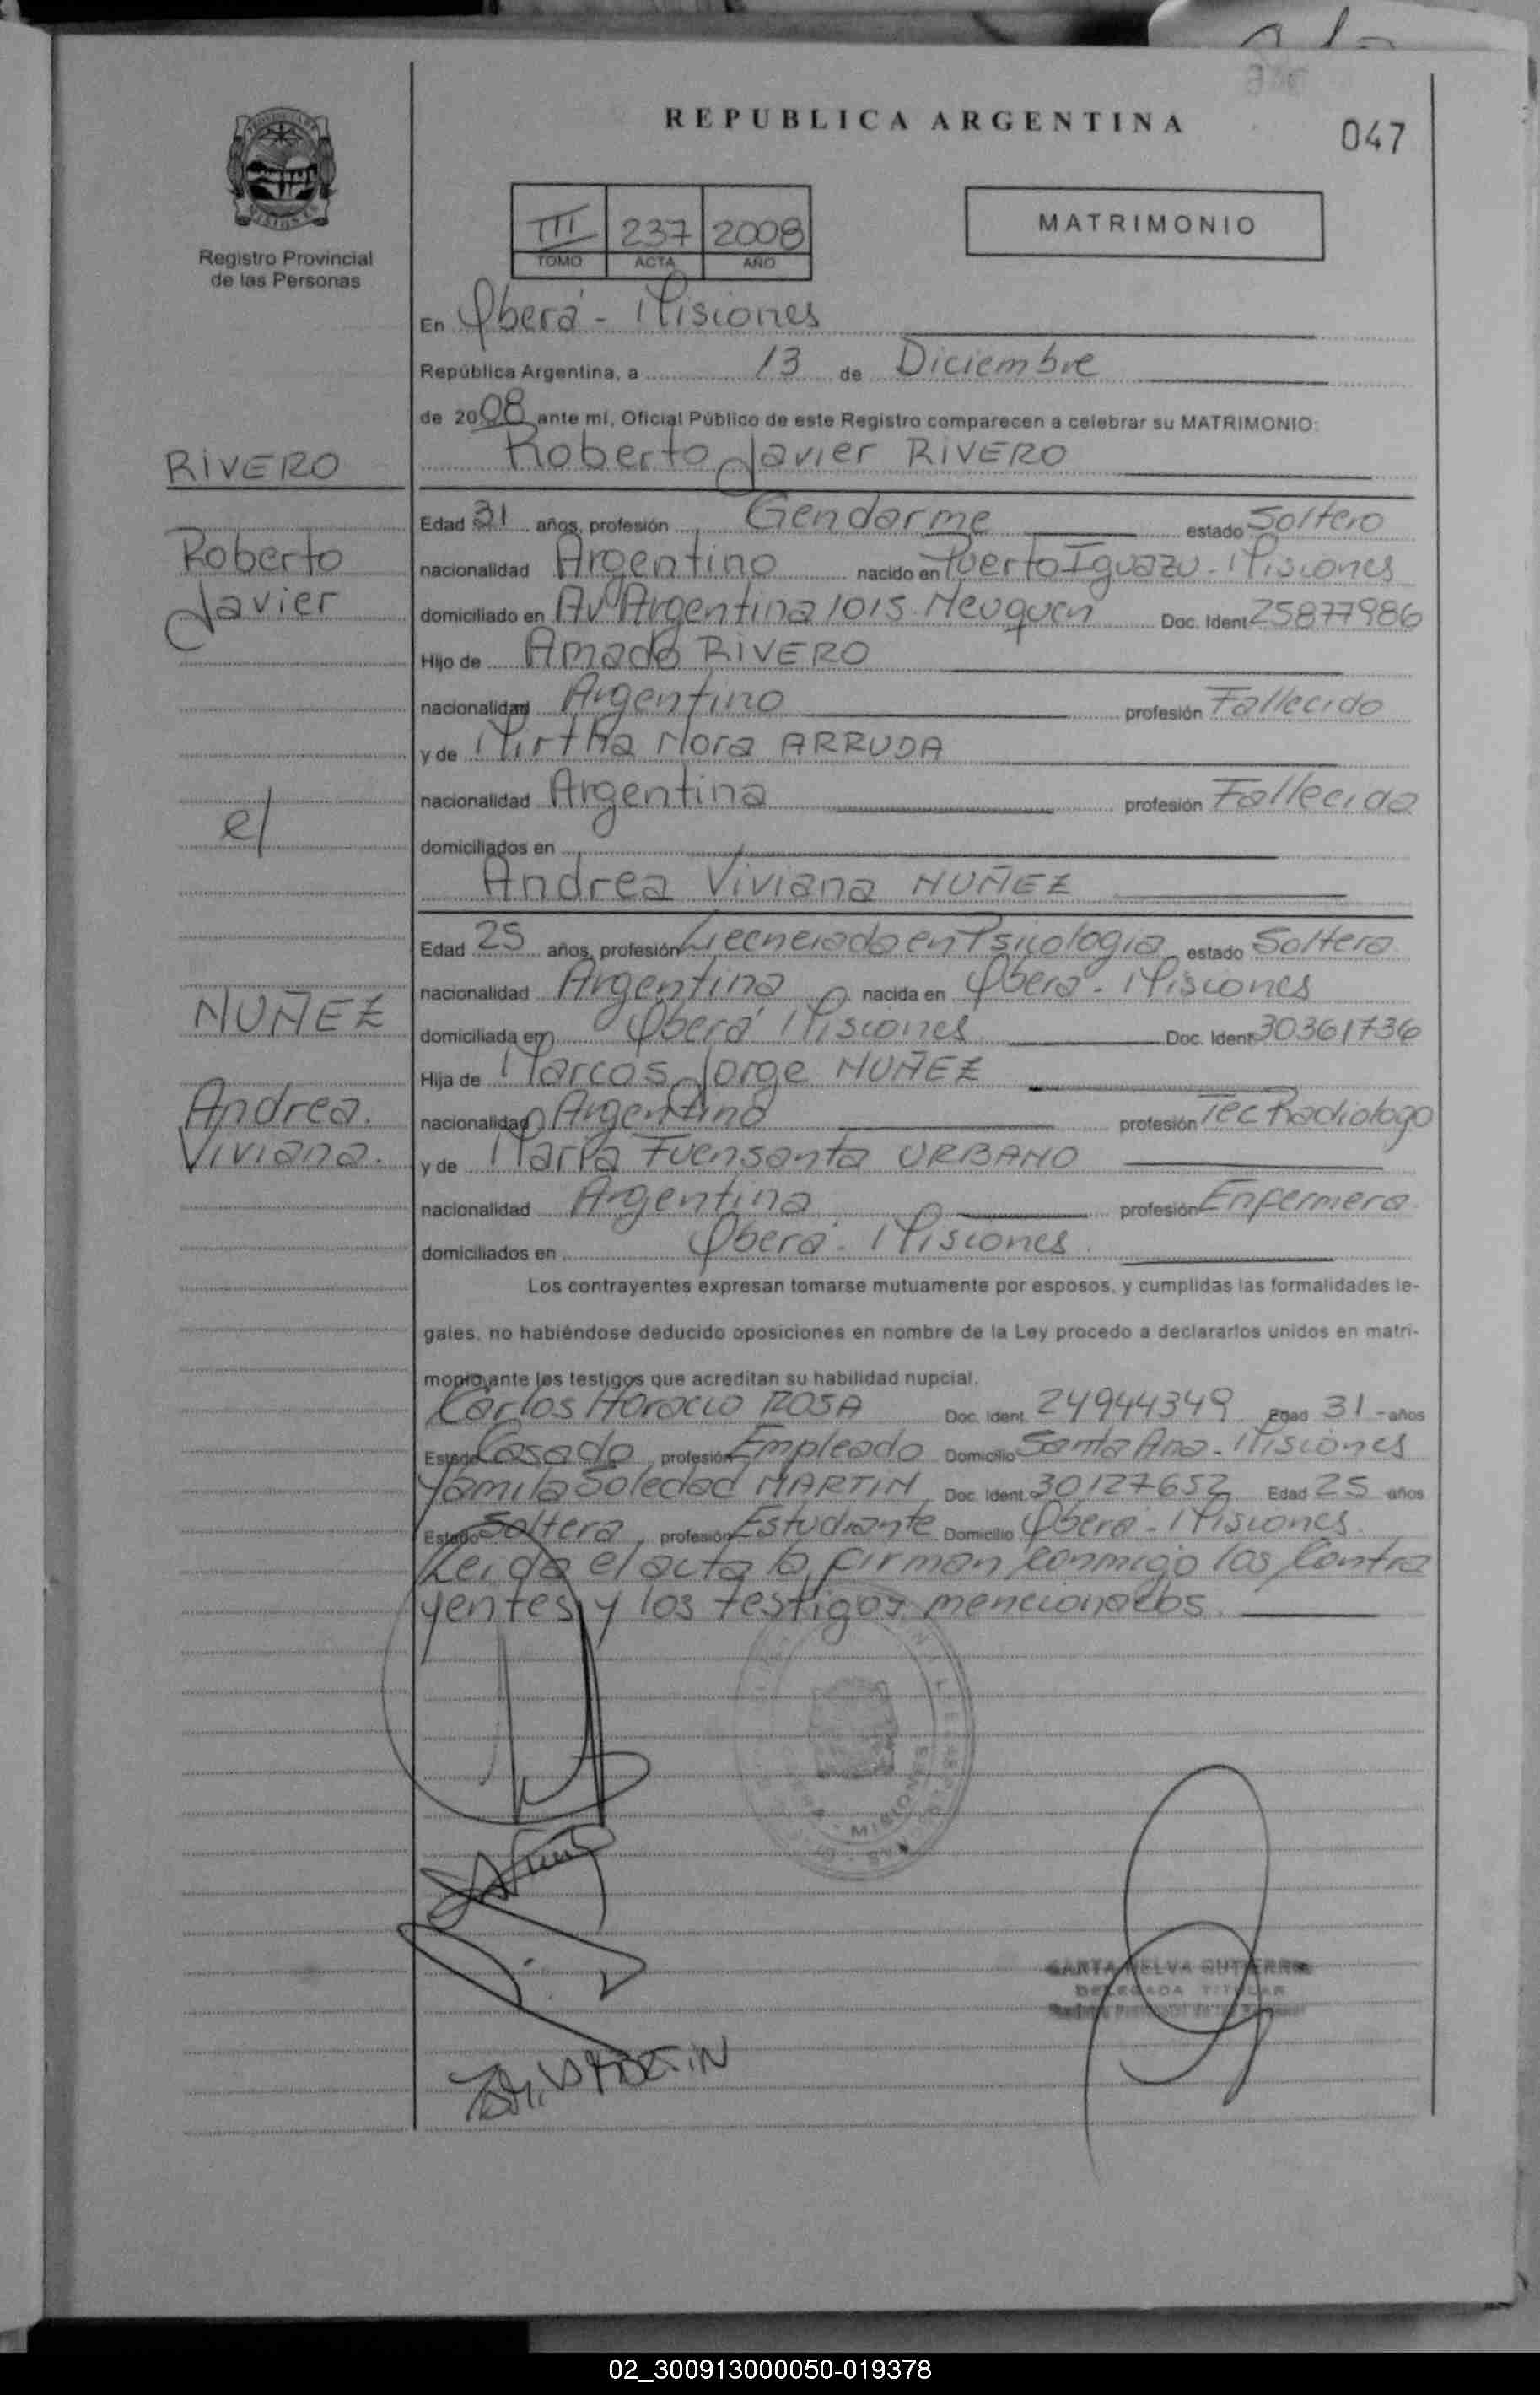 REPUBLICA ARGENTINA
047
Registro Provincial
de las Personas
III 237 2008
TOMO ACTA AÑO
MATRIMONIO
En Oberá - Misiones
República Argentina, a 13 de Diciembre
de 2008 ante mí, Oficial Público de este Registro comparecen a celebrar su MATRIMONIO:
RIVERO
Roberto Javier RIVERO
Edad 31 años, profesión Gendarme estado Soltero
Roberto
nacionalidad Argentino nacido en Puerto Iguazu - Misiones
Javier
domiciliado en Av Argentina 1015 Neuquen Doc. Ident 25877986
Hijo de Amado RIVERO
nacionalidad Argentino profesión Fallecido
y de Mirtha Nora ARRUDA
nacionalidad Argentina profesión Fallecida
e/
domiciliados en
Andrea Viviana NUÑEZ
Edad 25 años, profesión Licenciada en Psicologia estado Soltera
nacionalidad Argentina nacida en Oberá - Misiones
NUÑEZ
domiciliada en Oberá Misiones Doc. Ident 30361736
Hija de Marcos Jorge NUÑEZ
Andrea.
nacionalidad Argentino profesión Tec Radiologo
Viviana.
y de Maria Fuensanta URBANO
nacionalidad Argentina profesión Enfermera
domiciliados en Oberá - Misiones
Los contrayentes expresan tomarse mutuamente por esposos, y cumplidas las formalidades le-
gales, no habiéndose deducido oposiciones en nombre de la Ley procedo a declararlos unidos en matri-
monio, ante los testigos que acreditan su habilidad nupcial.
Carlos Horacio ROSA Doc. Ident. 24944349 Edad 31 - años
Estado Casado profesión Empleado Domicilio Santa Ana - Misiones
Yamila Soledad MARTIN Doc. Ident. 30127652 Edad 25 años
Estado Soltera profesión Estudiante Domicilio Oberá - Misiones
Leida el acta la firman conmigo los Contra
yentes y los testigos mencionados.
MISIONES
DELEGADA TITULAR
MARTIN
02_300913000050-019378